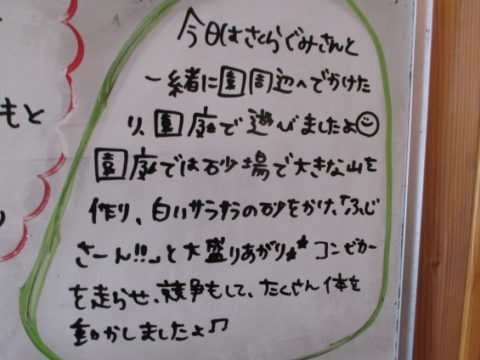 今日はさくらぐみさんと
一緒に園周辺へでかけた
り、園庭で遊びましたよ☺
園庭では砂場で大きな山を
作り、白いサラサラの砂をかけ、「ふじ
さーん!!」と大盛りあがり☆ コンビカー
を走らせ、競争もして、たくさん体を
動かしましたよ♫
もと